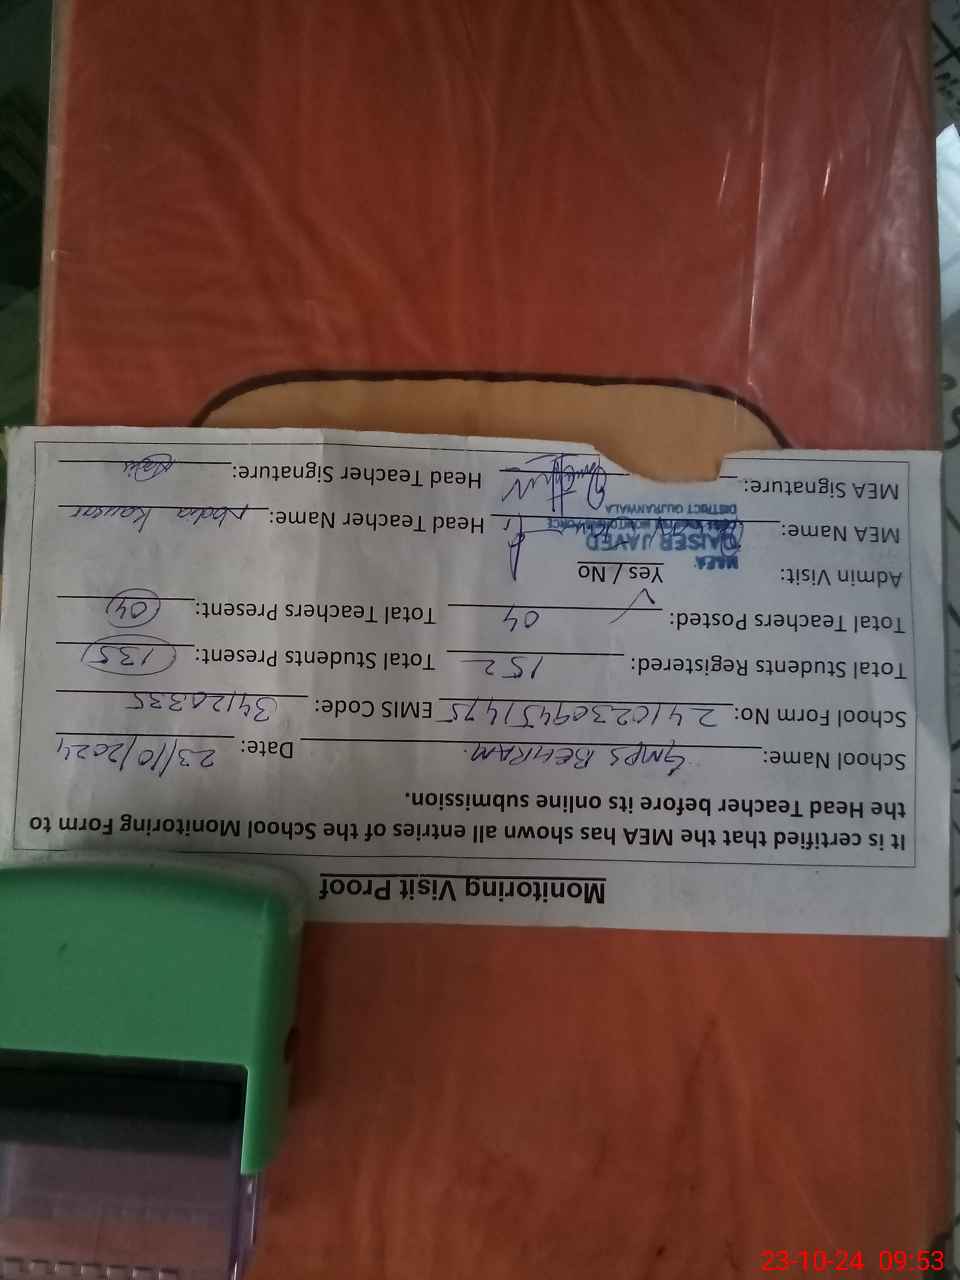 Monitoring Visit Proof
It is certified that the MEA has shown all entries of the School Monitoring Form to
the Head Teacher before its online submission.
School Name: GMPS BEHRAM. Date: 23/10/2024
School Form No: 24102309451475 EMIS Code: 34120335
Total Students Registered: 152 Total Students Present: 135
Total Teachers Posted: 04 Total Teachers Present: 04
Admin Visit: Yes / No
MEA Name: Head Teacher Name: Nadia Kausar
MEA Signature: Head Teacher Signature:
QAISER JAVED
DISTRICT GUJRANWALA
23-10-24 09:53